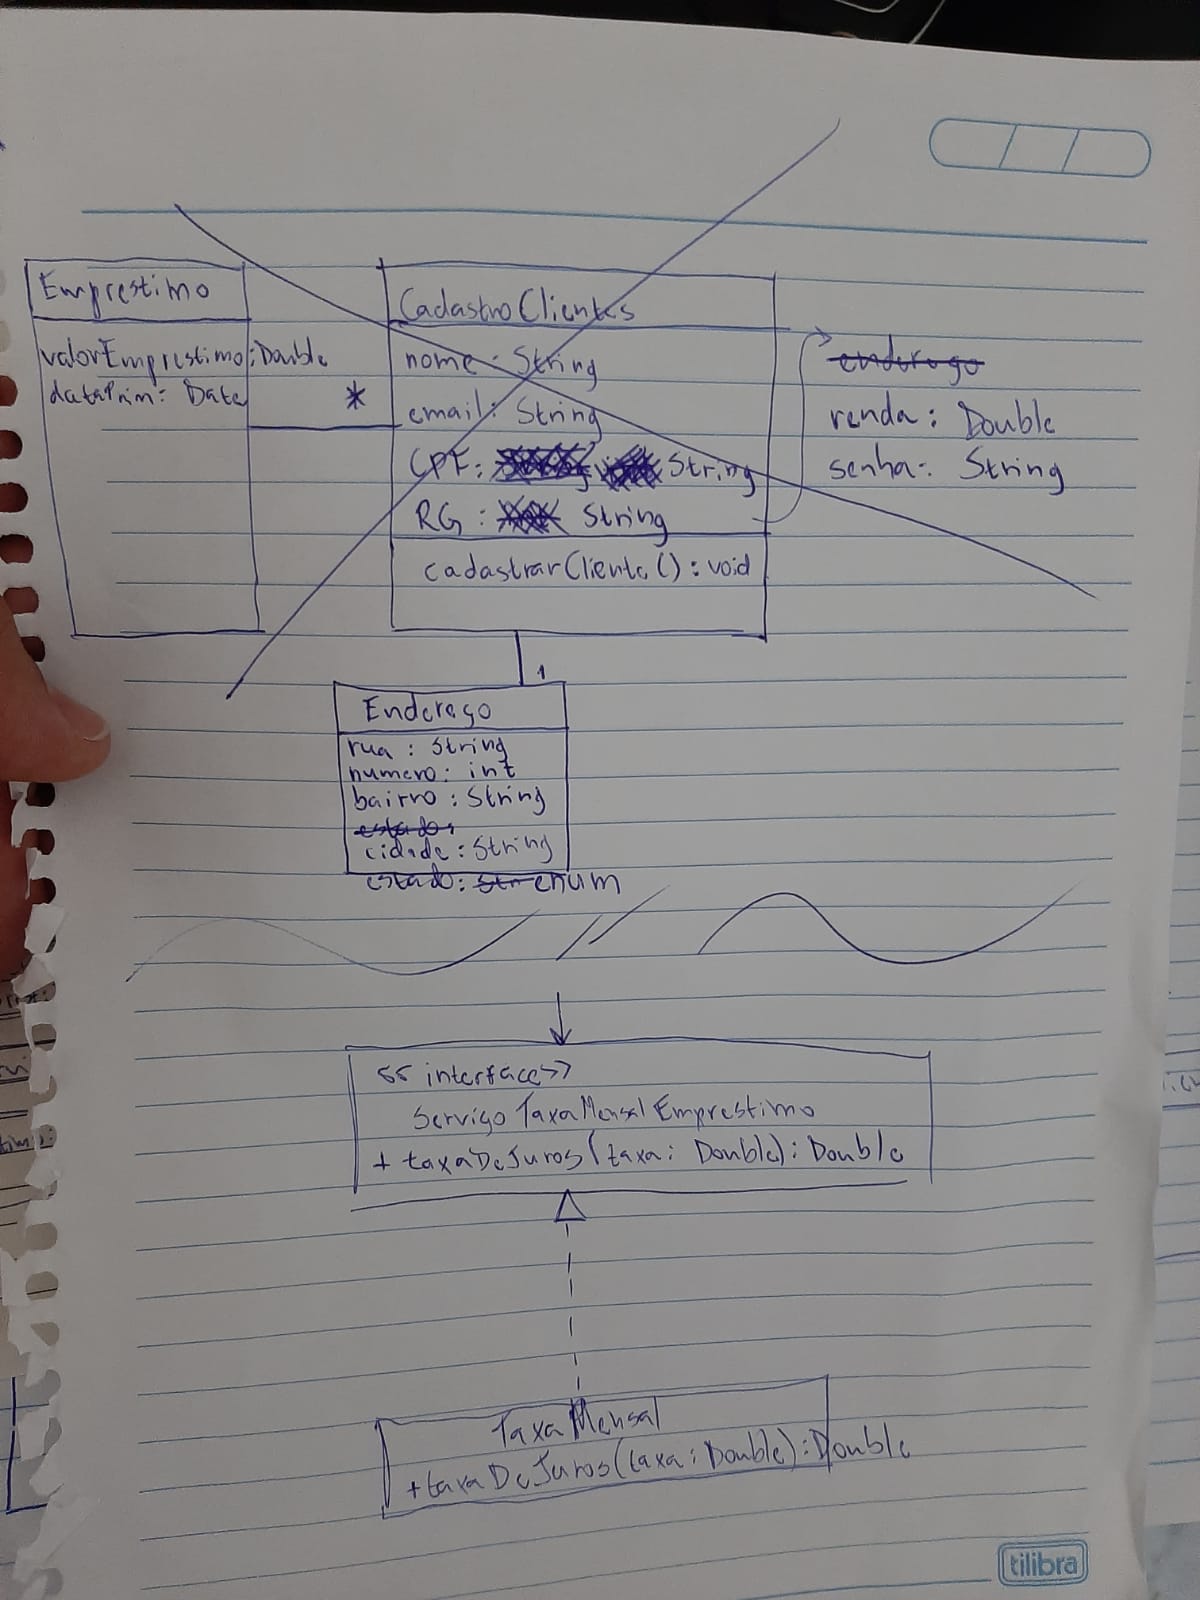 Emprestimo
valorEmprestimo:Double
dataPrim: Date
*
Cadastro Clientes
nome: String
email: String
CPF: String
RG: String
cadastrarCliente(): void
endereço
renda: Double
senha: String
1
Endereço
rua: String
numero: int
bairro: String
estado:
cidade: String
estado: Str enum
<< interface>>
Serviço TaxaMensal Emprestimo
+ taxaDeJuros(taxa: Double): Double
TaxaMensal
+taxaDeJuros(taxa: Double): Double
tilibra